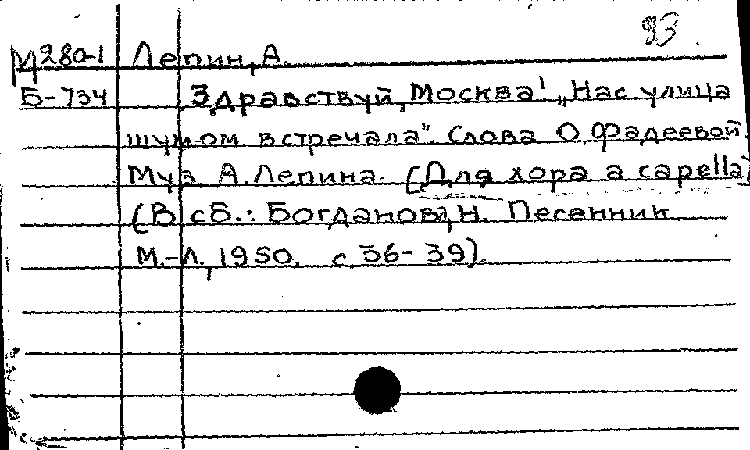 93
М280-1 Лепин, А.
Б-734 Здравствуй, Москва! „Нас улица
шумом встречала". Слова О. Фадеевой
Муз. А. Лепина. (Для хора a capella)
(В сб.: Богданова, Н. Песенник
М.-Л., 1950. с 36-39).